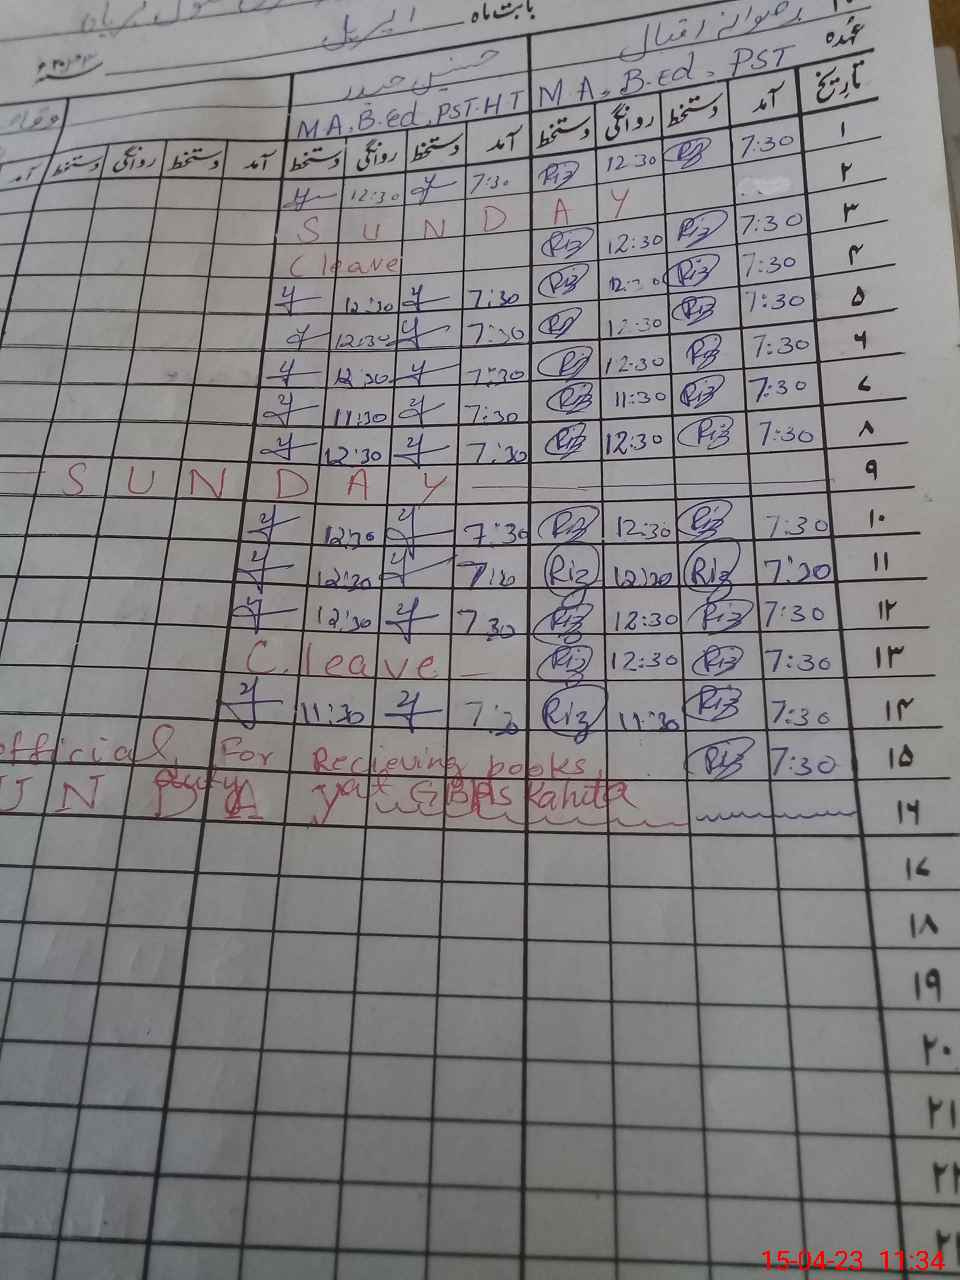 بابت ماہ اپریل
رضوانہ اقبال
عہدہ M A. B.Ed. PST
M A. B.Ed. PST-HT
تاریخ آمد دستخط روانگی دستخط آمد دستخط روانگی دستخط آمد دستخط روانگی دستخط آمد
۱ 7:30 Riz 12:30 Riz 7:30 12:30
۲ S U N D A Y
۳ 7:30 Riz 12:30 Riz C leave
۴ 7:30 Riz 12:30 Riz 7:30 12:30
۵ 7:30 Riz 12:30 Riz 7:30 12:30
۶ 7:30 Riz 12:30 Riz 7:30 12:30
۷ 7:30 Riz 11:30 Riz 7:30 11:30
۸ 7:30 Riz 12:30 Riz 7:30 12:30
۹ S U N D A Y
۱۰ 7:30 Riz 12:30 Riz 7:30 12:30
۱۱ 7:30 Riz 12:30 Riz 7:30 12:30
۱۲ 7:30 Riz 12:30 Riz 7:30 12:30
۱۳ 7:30 Riz 12:30 Riz C. leave
۱۴ 7:30 Riz 11:30 Riz 7:30 11:30
۱۵ 7:30 Riz official duty For Recieving books
at GBPS Kahita
۱۶ U N D A Y
۱۷
۱۸
۱۹
۲۰
۲۱
۲۲
15-04-23 11:34